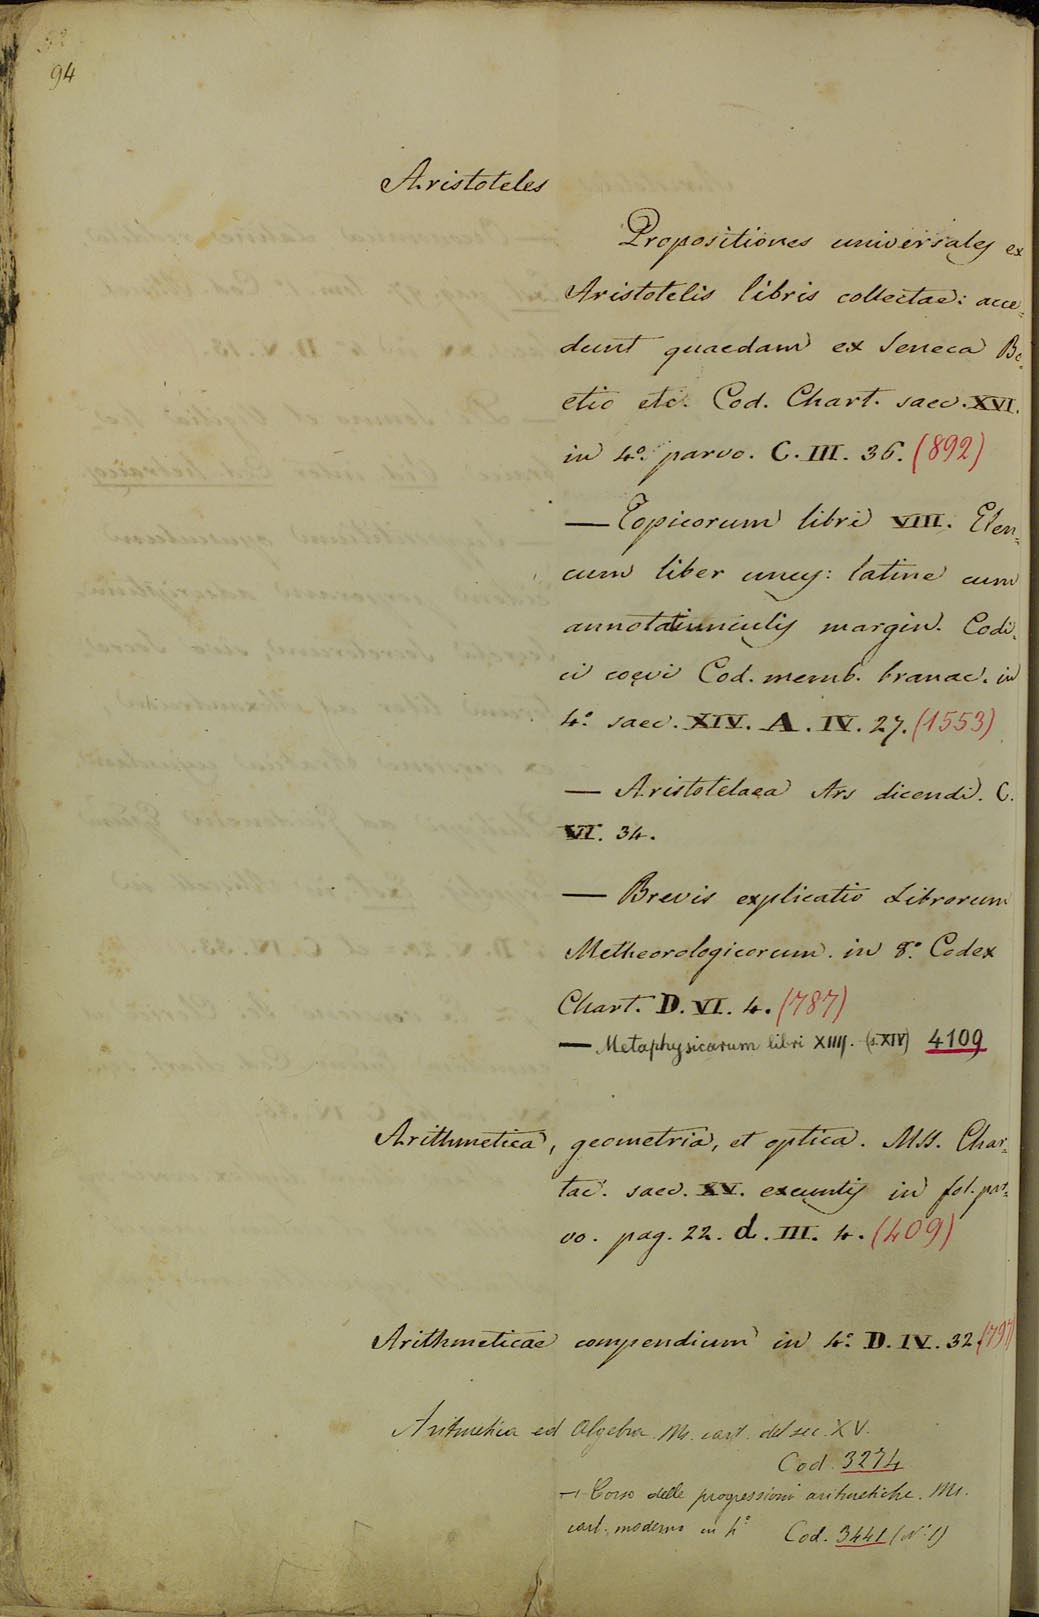 94
Aristoteles
Propositiones universales ex
Aristotelis libris collectae: acce=
dunt quaedam ex Seneca Bo=
etio etc. Cod. Chart. saec. XVI.
in 4.° parvo. C. III. 36. (892)
— Topicorum libri VIII. Elen=
cum liber unus: latine cum
annotatiunculis margin. Codi=
ci coevi Cod. memb. branac. in
4.° saec. XIV. A. IV. 27. (1553)
— Aristotelaea Ars dicendi. C.
VI. 34.
— Brevis explicatio Librorum
Metheorologicorum. in 8.° Codex
Chart. D. VI. 4. (787)
— Metaphysicarum libri XIIII. (s. XIV) 4109
Arithmetica, geometria, et optica. MSS. Char=
tac. saec. XV. exeuntis in fol. par=
vo. pag. 22. d. III. 4. (409)
Arithmeticae compendium in 4.° D. IV. 32. (797)
Aritmetica ed Algebra. Ms. cart. del sec. XV.
Cod. 3274
— Corso delle progressioni aritmetiche. Ms.
cart. moderno in 4° Cod. 3441 (N.° 1)